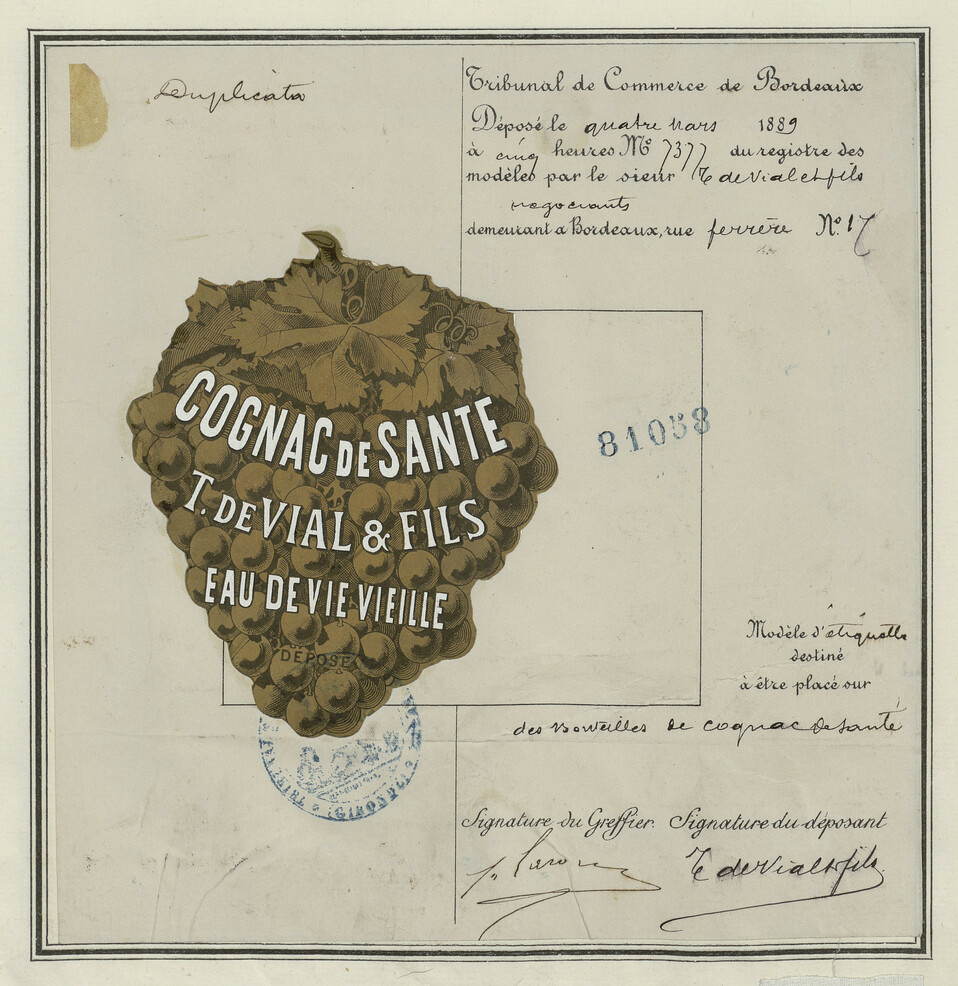 Duplicata
Tribunal de Commerce de Bordeaux
Déposé le quatre Mars 1889
à cinq heures No 7377 du registre des
modèles par le sieur T de Vial et fils
négociants
demeurant a Bordeaux, rue ferrère No. 17
COGNAC DE SANTE
T. DE VIAL & FILS
EAU DE VIE VIEILLE
DEPOSÉ
81058
Modèle d'étiquette
destiné
à être placé sur
des Bouteilles de cognac de santé
GIRONDE
Signature du Greffier. Signature du déposant
T de Vial et fils